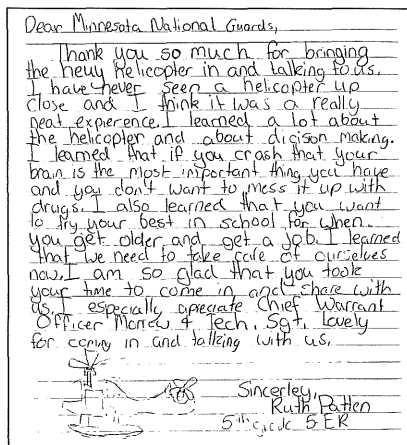 Dear Minnesota National Guards,
Thank you so much for bringing
the heuy helicopter in and talking to us.
I have never seen a helicopter up
close and I think it was a really
neat expierence. I learned a lot about
the helicopter and about digison making.
I learned that if you crash that your
brain is the most important thing you have
and you don't want to mess it up with
drugs. I also learned that you want
to try your best in school for when
you get older and get a job. I learned
that we need to take care of ourselves
now. I am so glad that you took
your time to come in and share with
us. I especially apreciate Chief Warrant
Officer & Tech. Sgt. Lavely
for coming in and talking with us.
Sincerley,
Ruth Patten
5th grade 5ER